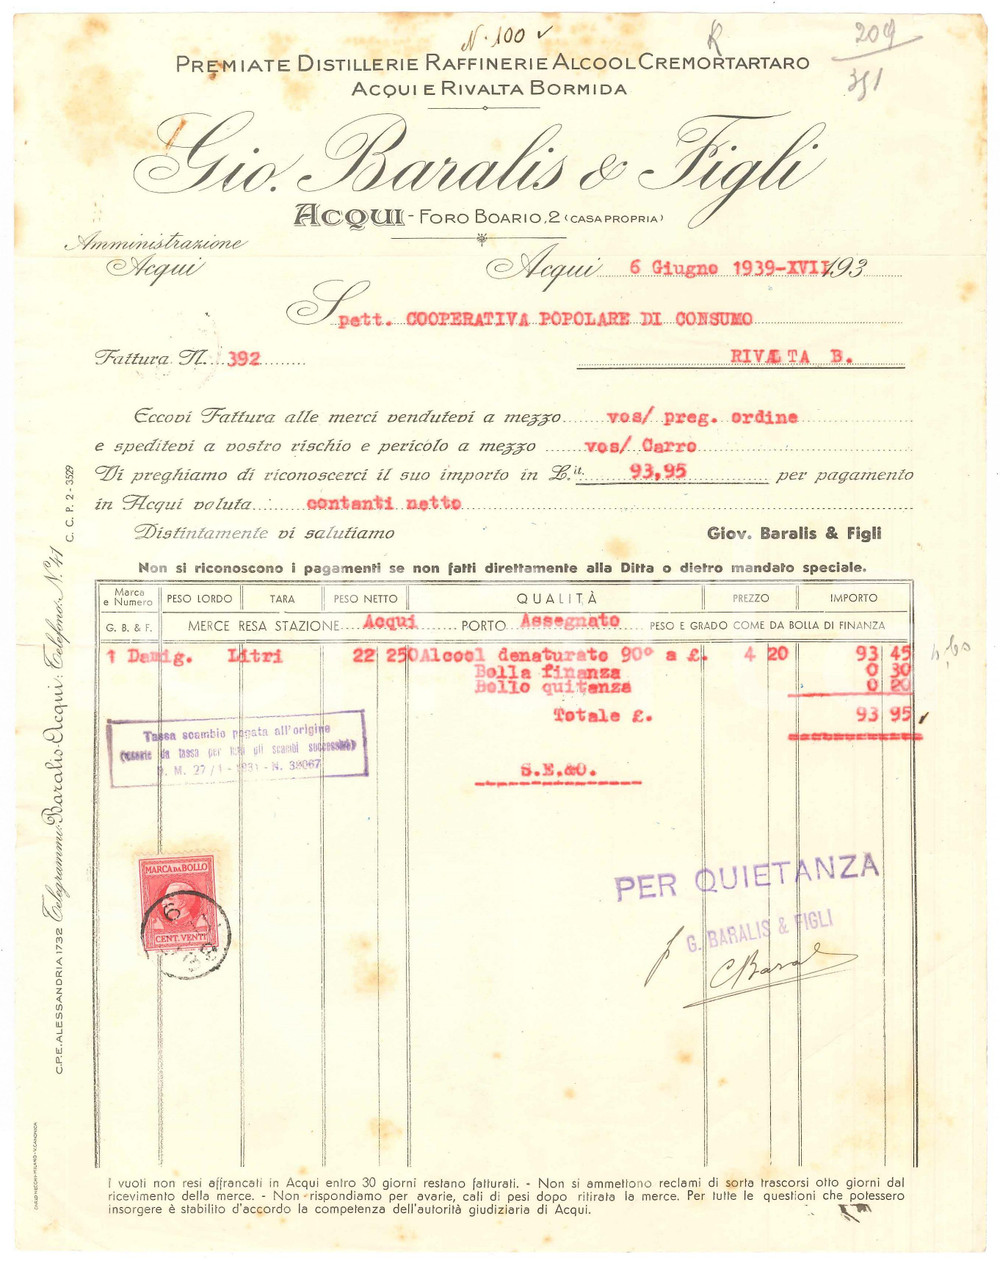 N. 100
R
209
391
PREMIATE DISTILLERIE RAFFINERIE ALCOOL CREMORTARTARO
ACQUI E RIVALTA BORMIDA
Gio. Baralis & Figli
ACQUI - FORO BOARIO, 2 (CASA PROPRIA)
Amministrazione
Acqui
Acqui 6 Giugno 1939-XVII 193
Spett. COOPERATIVA POPOLARE DI CONSUMO
Fattura N. 392
RIVALTA B.
Eccovi Fattura alle merci vendutevi a mezzo vos/ preg. ordine
e speditevi a vostro rischio e pericolo a mezzo vos/ Carro
Vi preghiamo di riconoscerci il suo importo in L.it. 93,95 per pagamento
in Acqui valuta contanti netto
Distintamente vi salutiamo
Giov. Baralis & Figli
Non si riconoscono i pagamenti se non fatti direttamente alla Ditta o dietro mandato speciale.
Marca e Numero PESO LORDO TARA PESO NETTO QUALITÀ PREZZO IMPORTO
G. B. & F. MERCE RESA STAZIONE Acqui PORTO Assegnato PESO E GRADO COME DA BOLLA DI FINANZA
1 Damig. Litri 22 250 Alcool denaturato 90° a £. 4 20 93 45
Bolla finanza 0 30
Bollo quitanza 0 20
Totale £. 93 95
S.E.&O.
Tassa scambio pagata all'origine
(esente da tassa per tutti gli scambi successivi)
D. M. 27/1-1931-N. 38067
MARCA DA BOLLO
CENT. VENTI
PER QUIETANZA
G. BARALIS & FIGLI
I vuoti non resi affrancati in Acqui entro 30 giorni restano fatturati. - Non si ammettono reclami di sorta trascorsi otto giorni dal
ricevimento della merce. - Non rispondiamo per avarie, cali di pesi dopo ritirata la merce. Per tutte le questioni che potessero
insorgere è stabilito d'accordo la competenza dell'autorità giudiziaria di Acqui.
C. C. P. 2 - 3529
C.P.E. ALESSANDRIA 1732 Telegrammi: Baralis-Acqui: Telefono N. 41